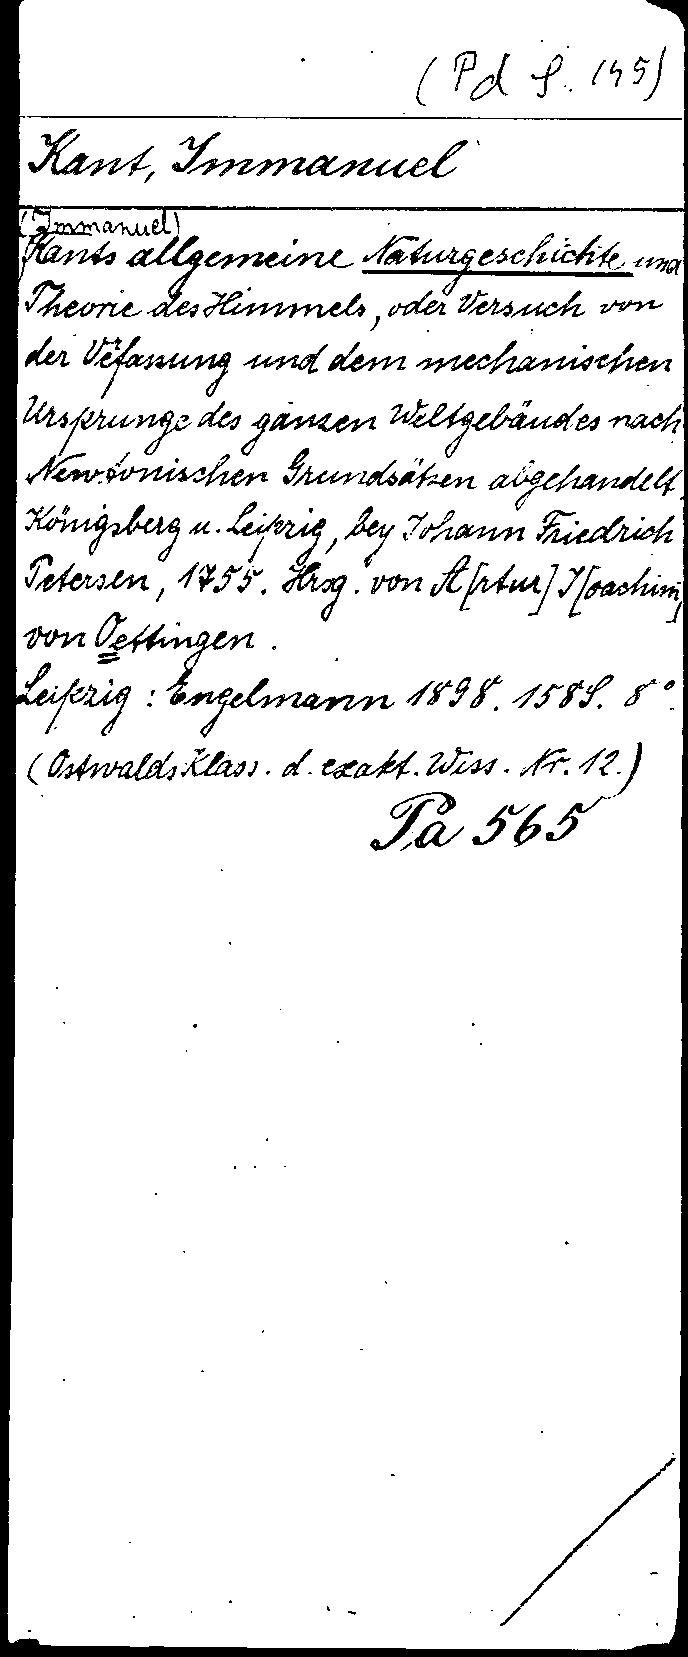 (Pd S. 145)
Kant, Immanuel
(Immanuel)
Kants allgemeine Naturgeschichte und
Theorie des Himmels, oder Versuch von
der Verfassung und dem mechanischen
Ursprunge des ganzen Weltgebäudes nach
Newtonischen Grundsätzen abgehandelt.
Königsberg u. Leipzig, bey Johann Friedrich
Petersen, 1755. Hrsg. von A[rtur] J[oachim]
von Oettingen.
Leipzig: Engelmann 1898. 158 S. 8°.
(Ostwalds Klass. d. exakt. Wiss. Nr. 12.)
Pa 565